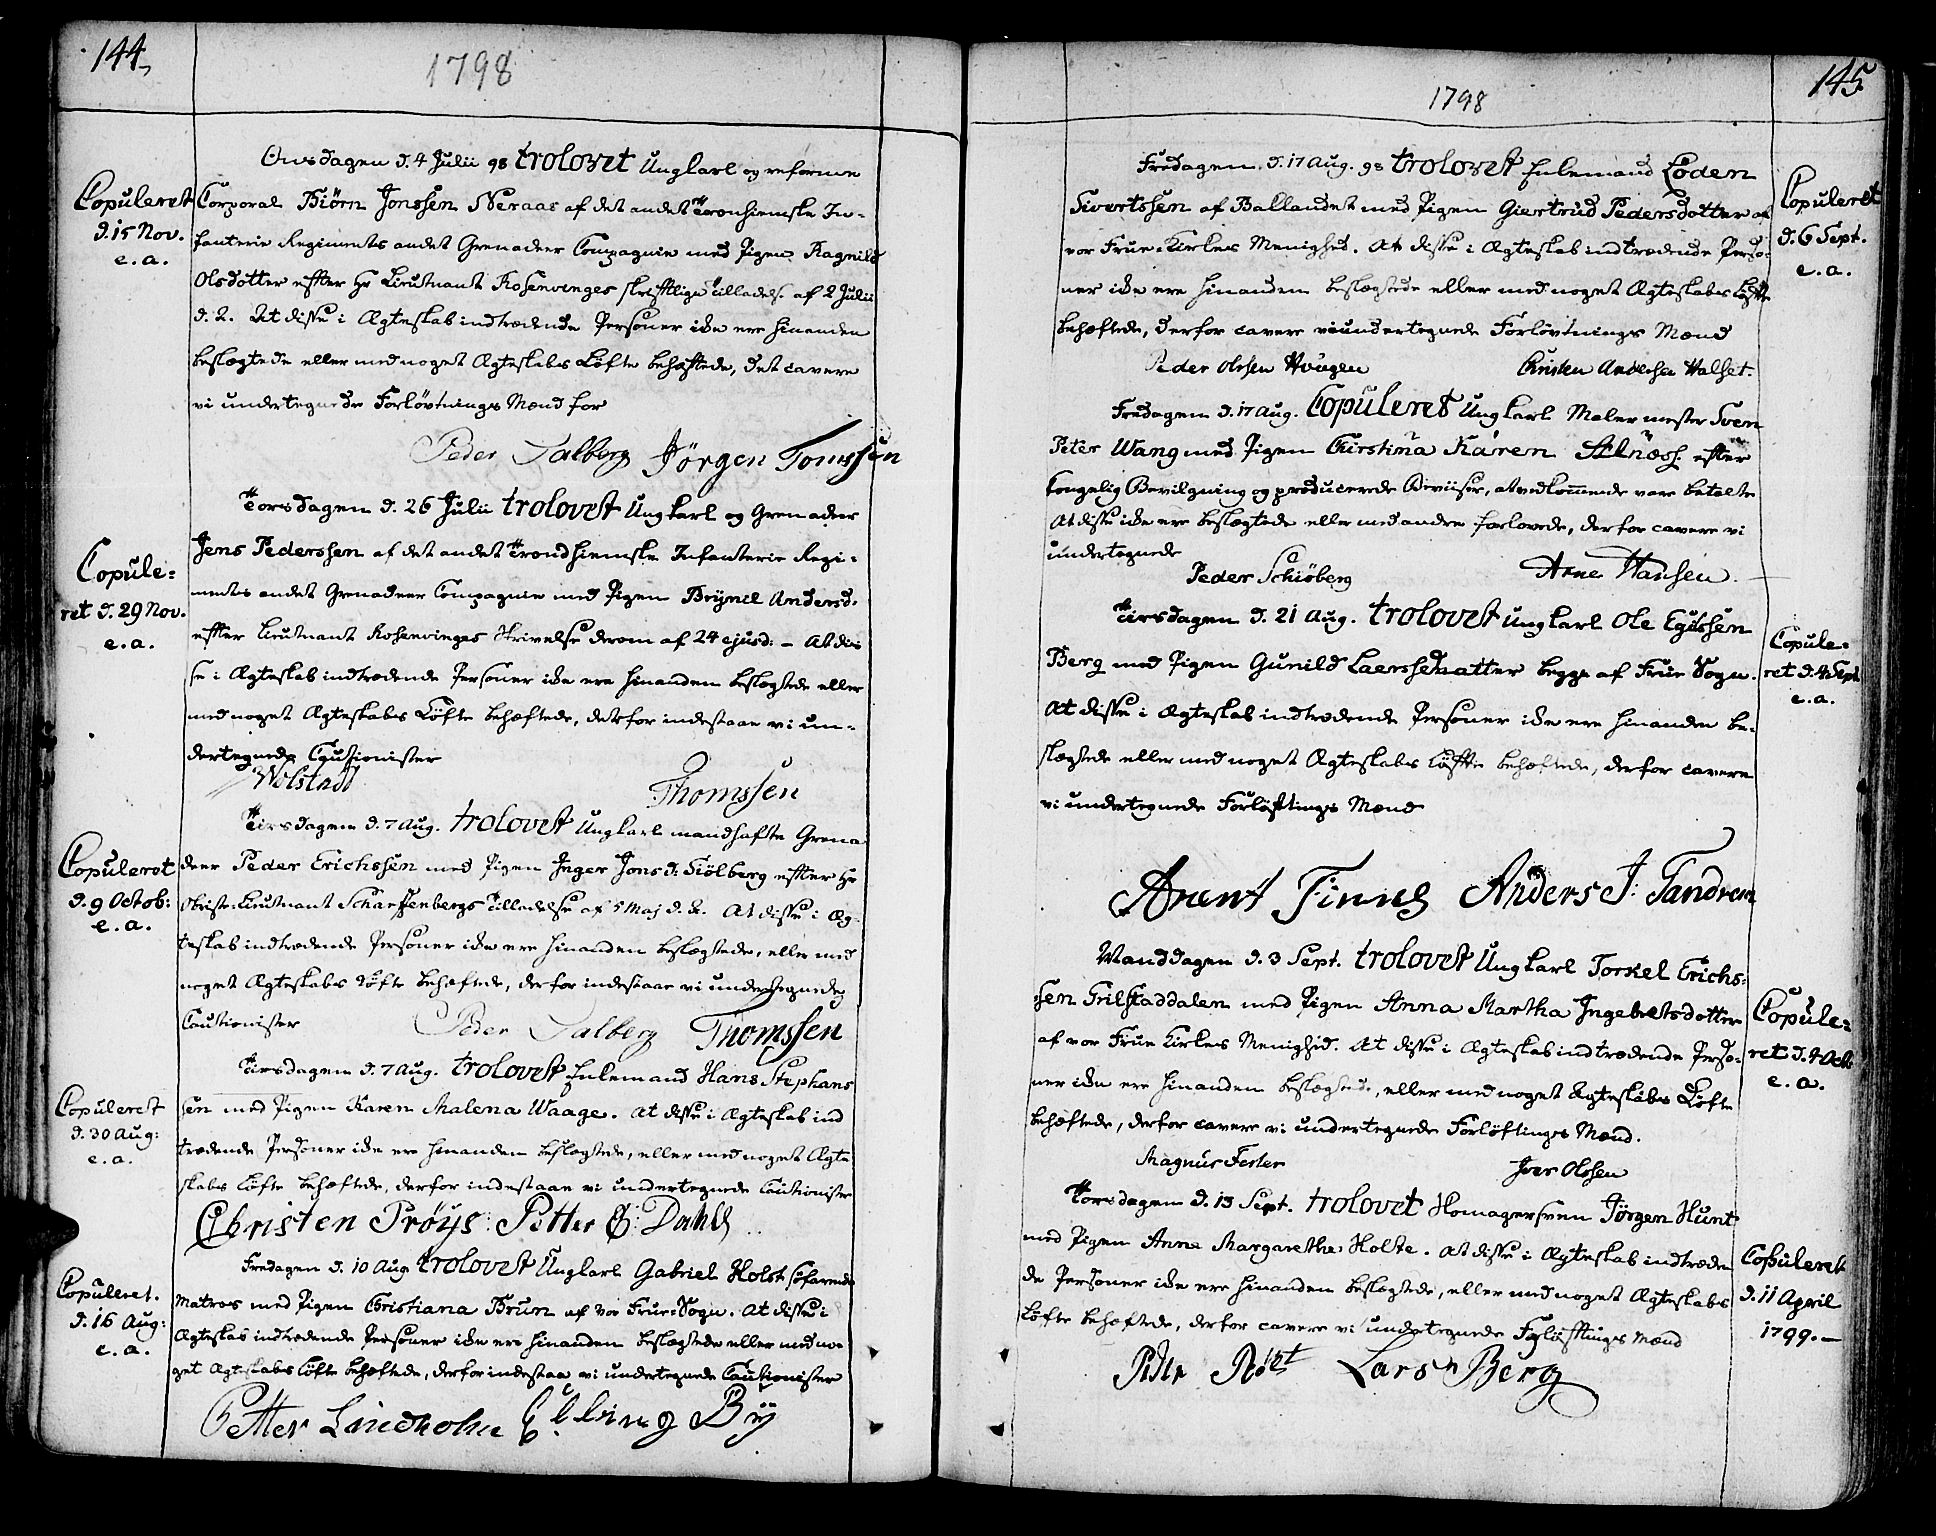 144,
1798
Onsdagen d. 4 Julii 98 trolovet Ungkarl og reforme
Copuleret
d. 15 Nov.
e. a.
Corporal Biörn Jonssen Neraas af det andet Tronhiemske In-
fanterie Regiments andet Grenadeer Compagnie med Pigen Ragnild
Olsdotter effter Hr Lieutnant Rosenvinges skrifftlige Tilladelse af 2 Julii
d. A. At disse i Ægteskab indtrædende Personer ikke ere hinanden
beslægtede eller med noget Ægteskabs Löfte behæftede, det cavere
vi undertegnede Forlövtnings Mænd for
Peder Salberg Jörgen Tomssen
Torsdagen d. 26 Julii trolovet Ungkarl og Grenadeer
Copule=
ret d. 29 Nov.
e. a.
Jens Pederssen af det andet Trondhiemske Infanterie Regi=
mentes andet Grenadeer Compagnie med Pigen Brynil Andersd.
effter Lieutnant Rosenvinges Skrivelse derom af 24 ejusd: - At dis
se i Ægteskab indtrædende Personer ikke ere hinanden beslægtede eller
med noget Ægteskabs Löfte behæftede, derfor indestaae vi un-
dertegnede Cautionister
Wolstadt Thomssen
Tirsdagen d. 7 Aug. trolovet Ungkarl mandhafte Grena
Copuleret
d. 9 Octob:
e. a.
deer Peder Erichssen med Pigen Inger Jonsd: Siölberg effter Hr
Obriste-Lieutnant Scharffenbergs Tilladelse af 5 Maj d. A. At disse i Æg-
teskab indtrædende Personer ikke ere hinanden beslægtede, eller med
noget Ægteskabs Löfte behæftede, derfor indestaae vi undertegnede
Cautionister Peder Salberg Thomssen
Tirsdagen d. 7 Aug. trolovet Enkemand Hans Stephans
Copuleret
d. 30 Aug:
e. a.
sen med Pigen Karen Malena Waage. At disse i Ægteskab ind
trædende Personer ikke ere hinanden beslægtede, eller med noget Ægte
skabs Löfte behæftede, derfor indestaae vi undertegnede Cautionister
Christen Pröys: Petter E: Dahll
Fredagen d. 10 Aug trolovet Ungkarl Gabriel Holst söfarende
Copuleret.
d. 16 Aug:
e. a.
Matros med Pigen Christiana Brun af Vor Frue-Sogn. At disse i
Ægteskab indtrædende Personer ikke ere hinanden beslægtede eller med no-
get Ægteskabs Löfte behæftede, derfor indestaa vi undertegnede Cautionister
Petter Lindholm By
145.
1798
Fredagen d. 17 Aug. 98 trolovet Enkemand Loden
Copuleret
d. 6 Sept.
e. a.
Sivertssen af Ballandet med Pigen Giertrud Pedersdotter af
vor Frue-Kirkes Menighed. At disse i Ægteskab indtrædende Perso-
ner ikke ere hinanden beslægtede eller med noget Ægteskabs Löffte
behæftede, derfor cavere vi undertegnede Forlövtnings Mænd
Peder Olssen Hougen Christen Andersen Halset.
Fredagen d. 17 Aug. Copuleret Ungkarl Maler mester Sven
Peter Wang med Pigen Christina Karen effter
kongelig Bevilgning og producerede Beviiser, at vedkommende vare betalte
At disse ikke ere beslægtede eller med andre forlovede, derfor cavere vi
undertegnede
Peder Schiöberg Arne Hansen.
Tirsdagen d. 21 Aug. trolovet Ungkarl Ole Egilssen
Copule=
ret d. 4 Sept
e. a.
Berg med Pigen Gunild Laerssedaatter begge af Frue Sogn.
At disse i Ægteskab indtrædende Personer ikke ere hinanden be-
slægtede eller med noget Ægteskabs Löffte behæftede, derfor cavere
vi undertegnede Forlöftings Mænd
Arent Finnes Anders J: Tandrem
Manddagen d. 3 Sept. trolovet Ungkarl Torkel Erichs=
Copule=
ret d. 4 Octb
e. a.
sen Trilstaddalen med Pigen Anna Martha Ingebretsdotter
af vor Frue Kirkes Menighed. At disse i Ægteskab indtrædende Perso-
ner ikke ere hinanden beslægtede, eller med noget Ægteskabs Löfte
behæftede, derfor cavere vi undertegnede Forlöftings Mænd.
Magnus Fester Iver Olssen
Torsdagen d. 13 Sept. trolovet Homagersven Jörgen Hunt
Copuleret
d. 11 April
1799. -
med Pigen Anne Margarethe Holte. At disse i Ægteskab indtræden
de Personer ikke ere hinanden beslægtede, eller med noget Ægteskabs
Löfte behæftede, derfor cavere vi undertegnede Forlöfftings Mænd
Lars Berg